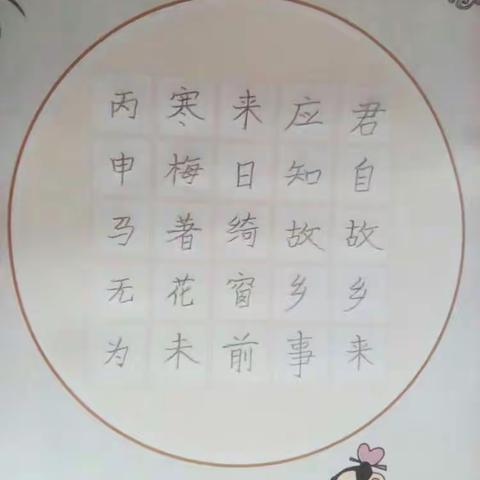 君自故乡来
应知故乡事
来日绮窗前
寒梅著花未
丙申马无为